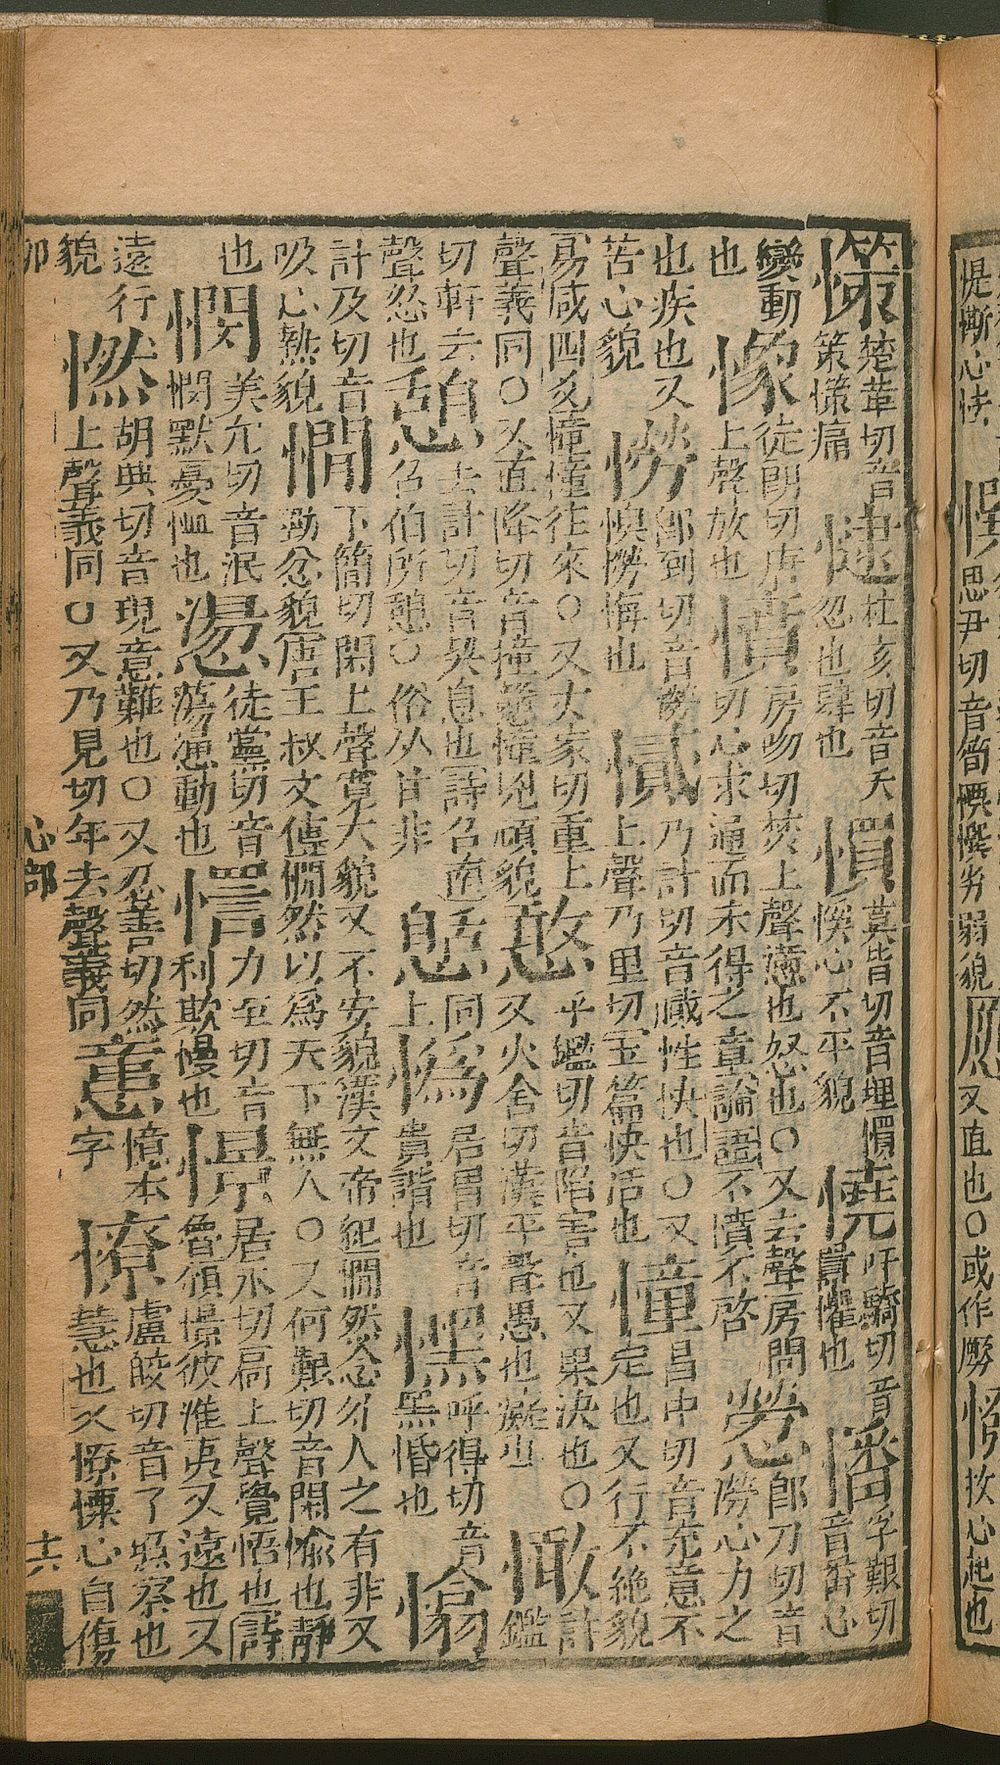 思尹切音筍 劣弱貌 又直也○或作 扙心起也
楚革切音策 痛 杜亥切音 忽也肆也 莫皆切音埋 心不平貌 憢吁驕切音囂懼也 憣孚艱切音番心
變動也 徒朗切唐上聲放也 憤房吻切焚上聲懣也怒也○又去聲房問切心求通而未得之意論語不憤不啓 憥郎刀切音僗心力之
也疾也又苦心貌 憦郎到切音 懊憦悔也 乃計切音膩性快也○又上聲乃里切玉篇快活也 憧昌中切音充意不定也又行不絶貌
易咸四爻憧憧往來○又丈冢切重上聲義同○又直降切音撞戇憧兇頑貌 憨乎鑑切音陷害也又果決也○又火含切漢平聲愚也癡也 計鑑
切軒去聲忿也 憩去計切音契息也詩召南召伯所憩○俗从自非 憇同上 居胃切音貴諧也 呼得切音黑惛也
計及切音吸心熱貌 憪下簡切閑上聲寬大貌又不安貌漢文帝紀憪然念外人之有非又勁忿貌唐王叔文傳憪然以為天下無人○又何艱切音閑愉也靜
也 憫美允切音泯憫默憂恤也 徒黨切音蕩 動也 力至切音利欺慢也 憬居永切扃上聲覺悟也詩魯頌憬彼淮夷又遠也又
遠行貌 胡典切音現意難也○又忍善切然上聲義同○又乃見切年去聲義同 憶本字 憭盧皎切音了照察也慧也又憭慄心自傷
卯 心部 十六